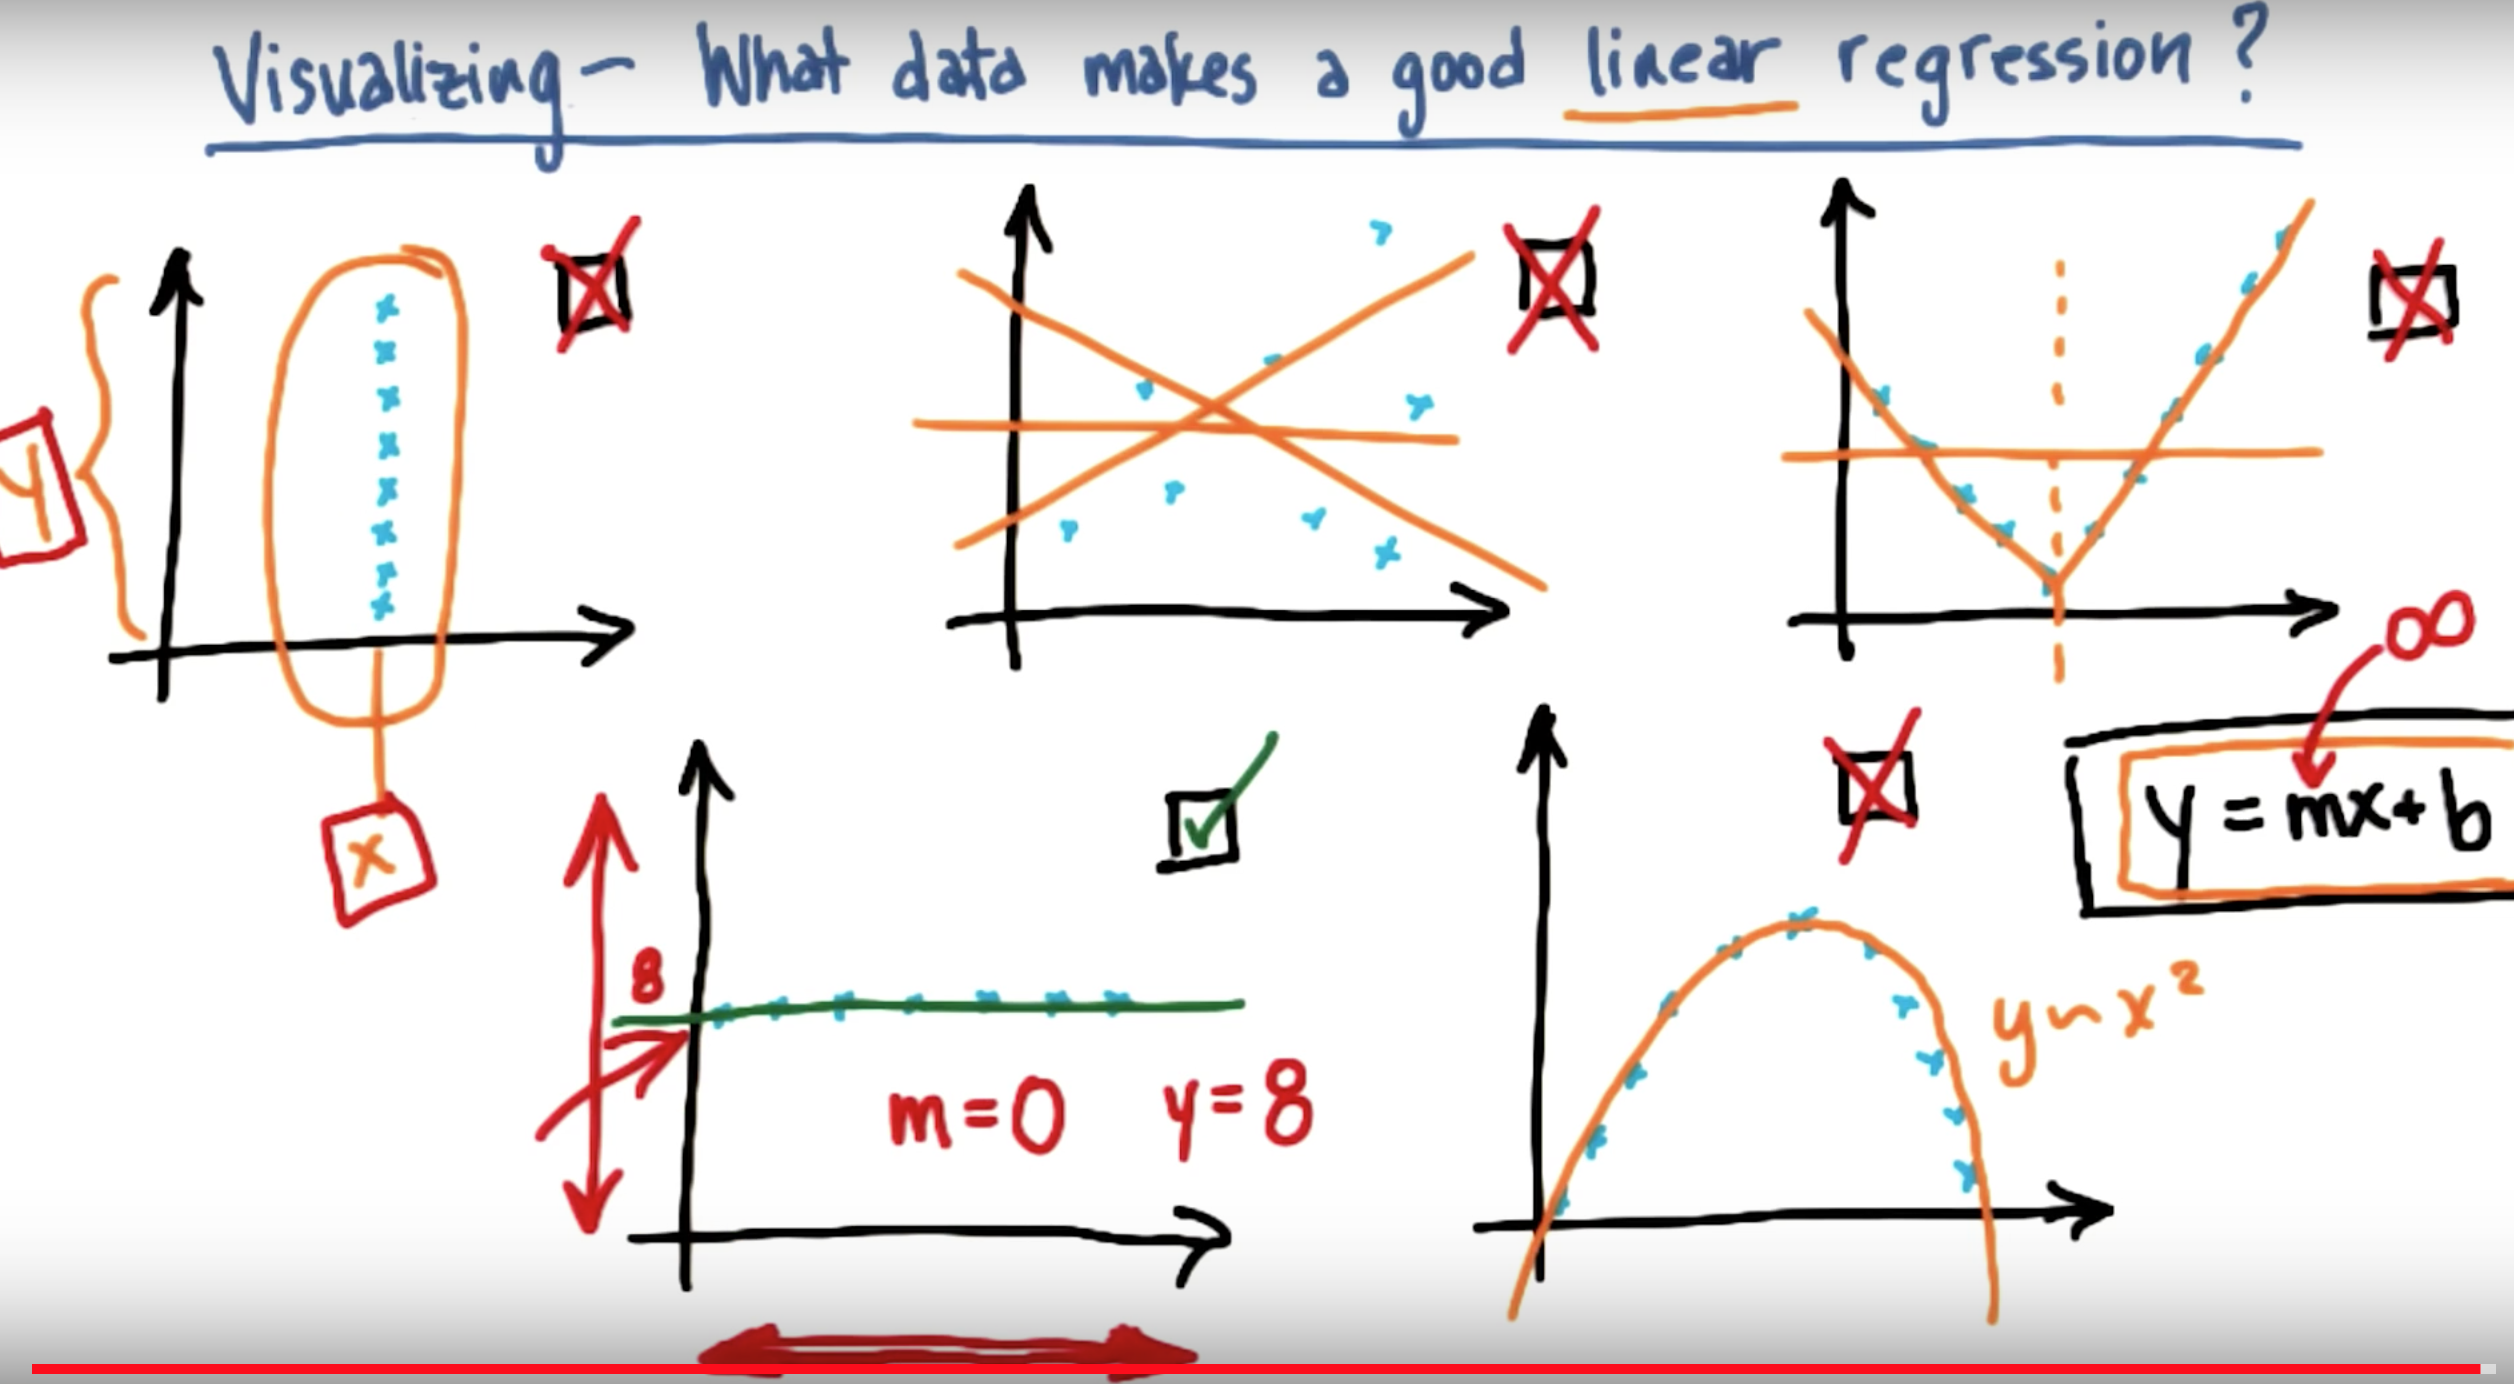 Visualizing - What data makes a good linear regression?
y
x
8
m=0 y=8
∞
y = mx+b
y~x²